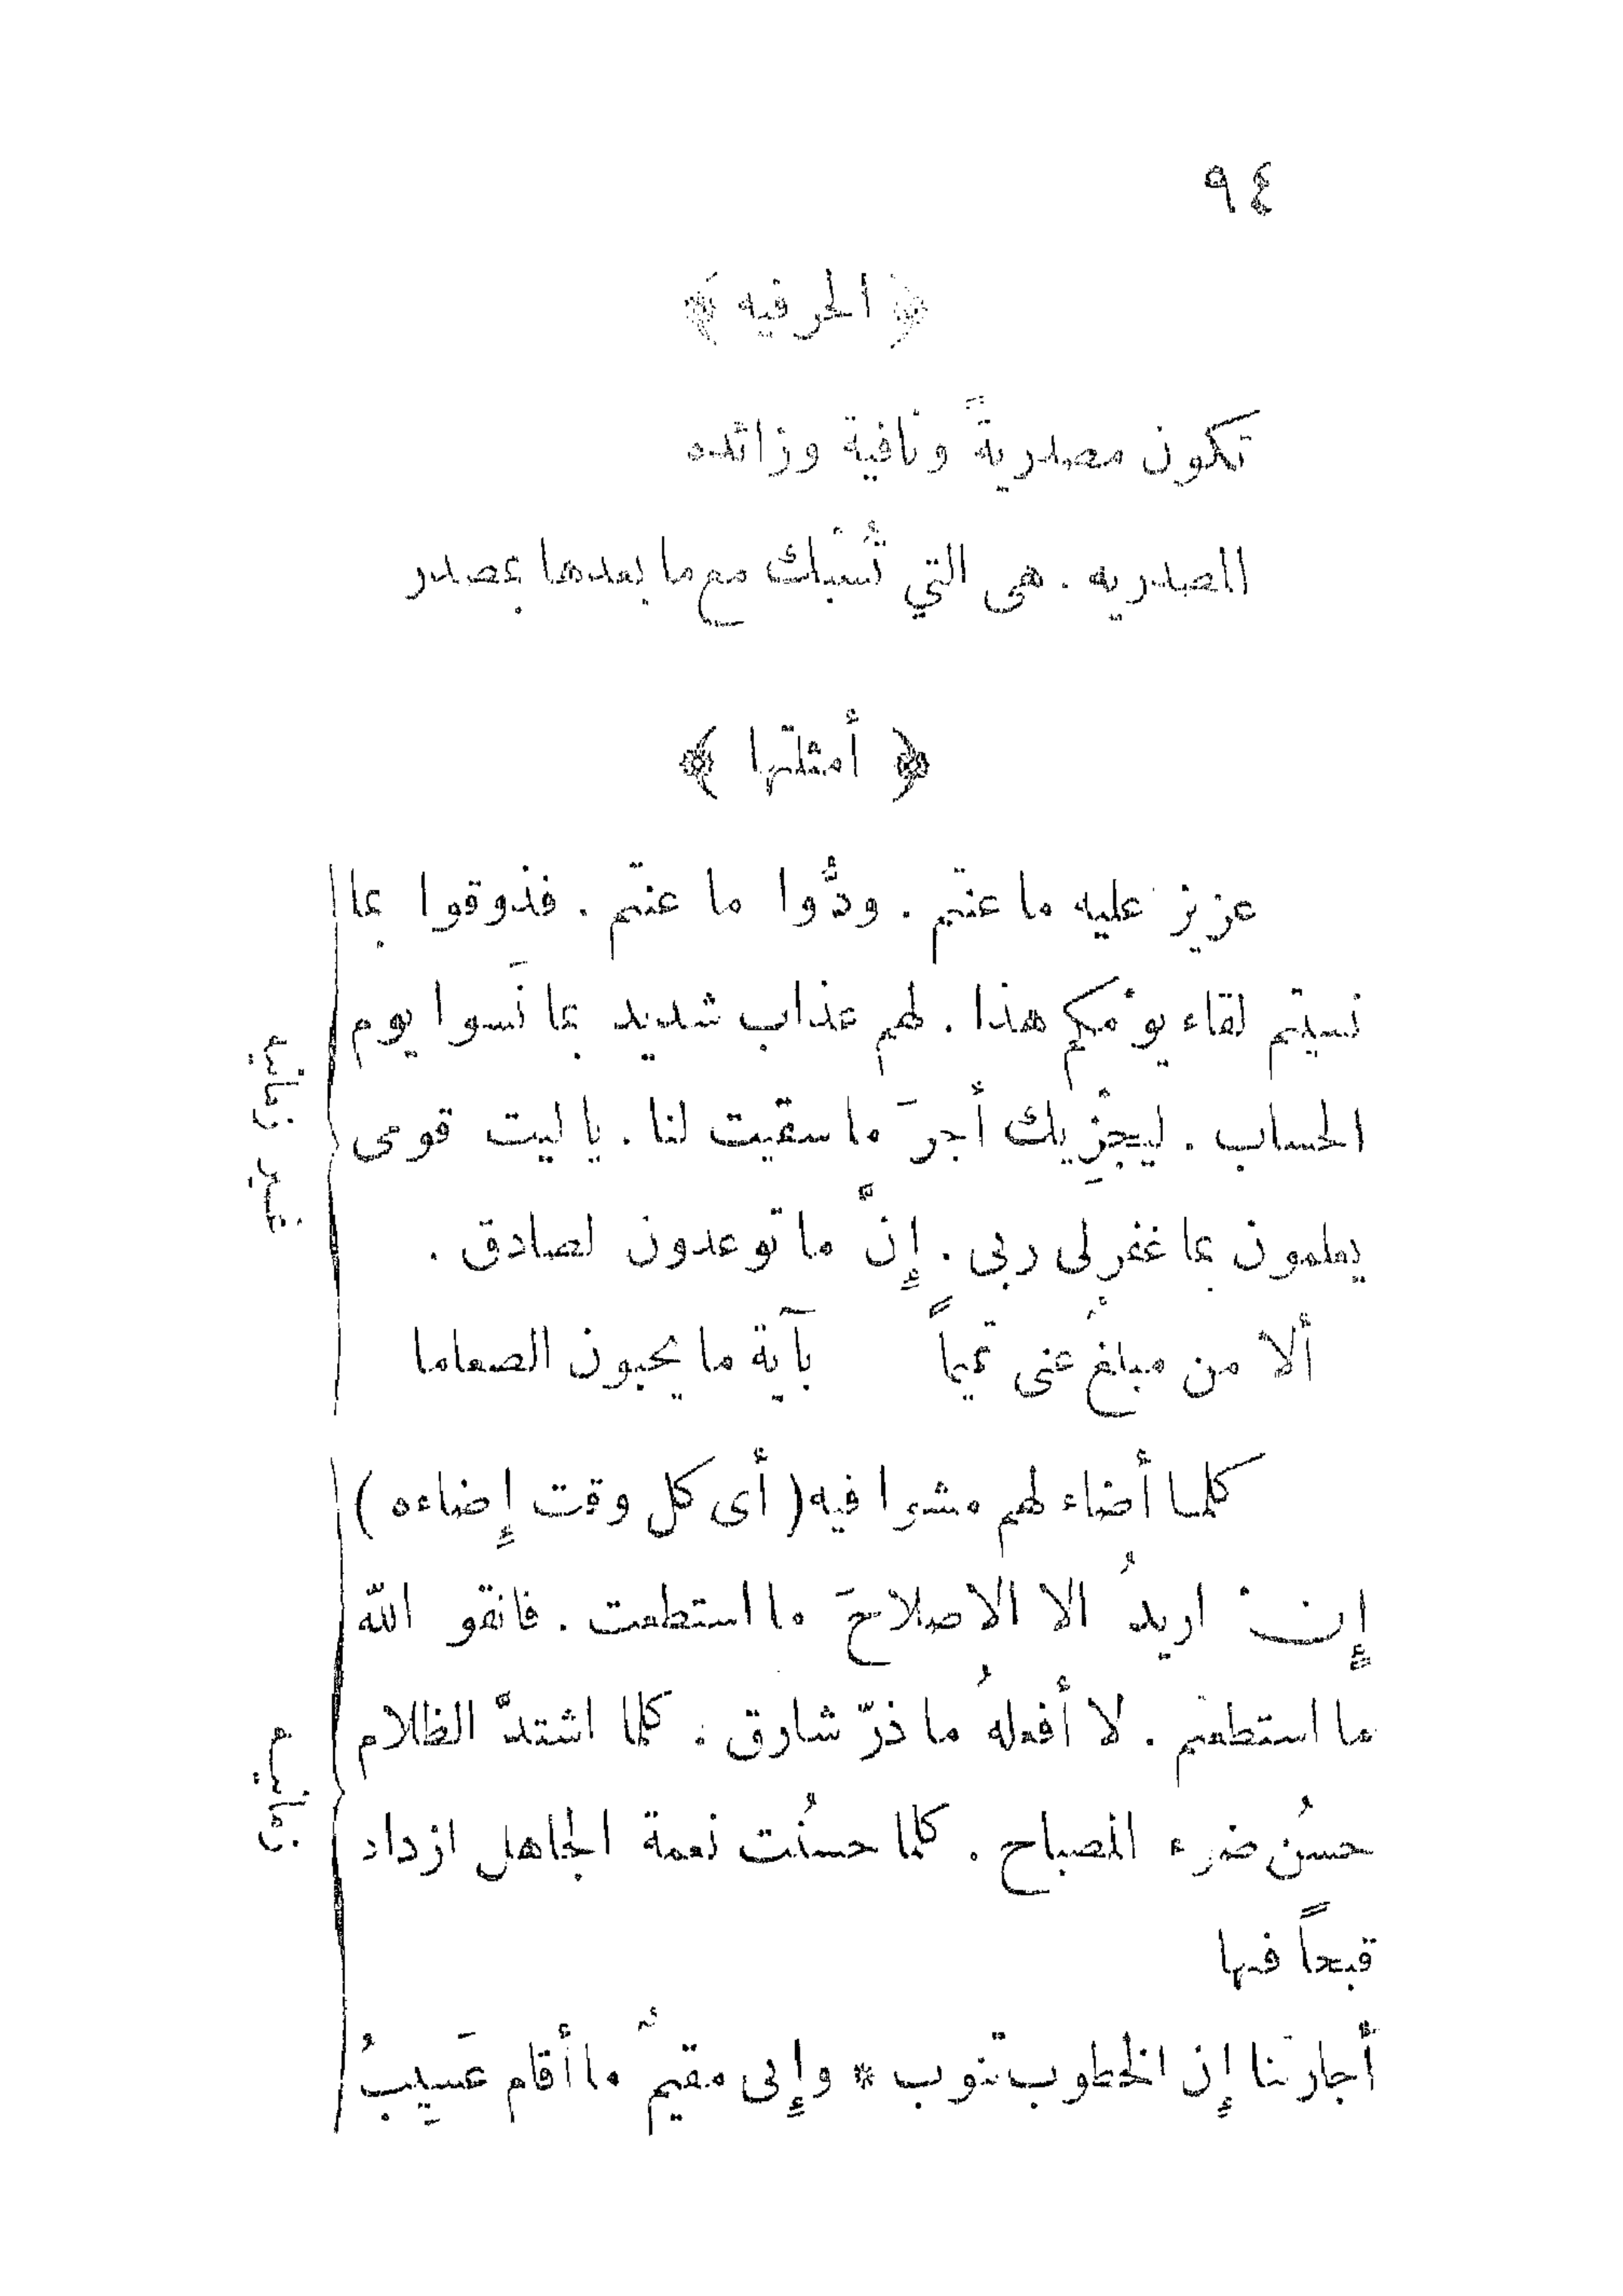 ٩٤
﴿ الحرفيه ﴾
تكون مصدريةً ونافية وزائده
المصدريه . هى التي تُسْبك مع ما بعدها بمصدر
﴿ أمثلتها ﴾
عزيز عليه ما عنتم . ودُّوا ما عنتم . فذوقوا بما
نسيتم لقاء يومكم هذا . لهم عذاب شديد بما نَسوا يوم
الحساب . ليجْزِيك أجرَ ما سقيت لنا . يا ليت قومى
يعلمون بما غفر لى ربى . إِنَّ ما توعدون لصادق .
ألا من مبلغْ عنى تميماً بآية ما يحبون الصعاما
غير زمانيه
كلما أضاء لهم مشوا فيه ( أى كل وقت إِضاءه )
إِن اريدُ الا الاصلاحَ ما استطعت . فاتقو اللّه
ما استطعتم . لا أفعلهُ ما ذرّ شارق . كلما اشتدَّ الظلام
حسُن ضوء المصباح . كلما حسنُت نعمة الجاهل ازداد
قبحاً فيها
أجارتنا إِن الخطوب تنوب * وإِنى مقيمٌ ما أقام عَسِيبُ
زمانيه